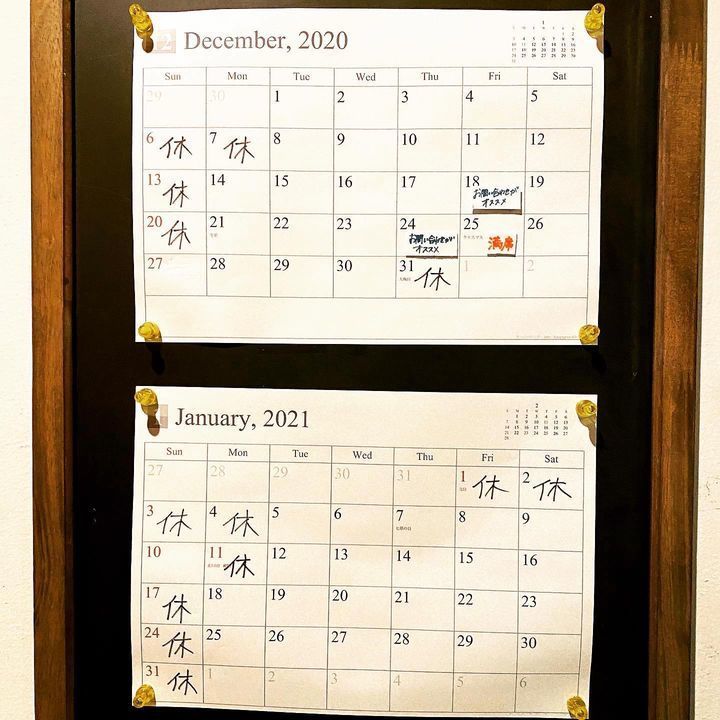 12 December, 2020
Sun Mon Tue Wed Thu Fri Sat
29 30 1 2 3 4 5
6 休 7 休 8 9 10 11 12
13 休 14 15 16 17 18 19
お問い合わせが
オススメ
20 休 21 22 23 24 25 26
お問い合わせが
オススメ
クリスマス 満席
27 28 29 30 31 休 1 2
大晦日
January, 2021
Sun Mon Tue Wed Thu Fri Sat
27 28 29 30 31 1 休 2 休
元日
3 休 4 休 5 6 7 8 9
七草の日
10 11 休 12 13 14 15 16
17 休 18 19 20 21 22 23
24 休 25 26 27 28 29 30
31 休 1 2 3 4 5 6